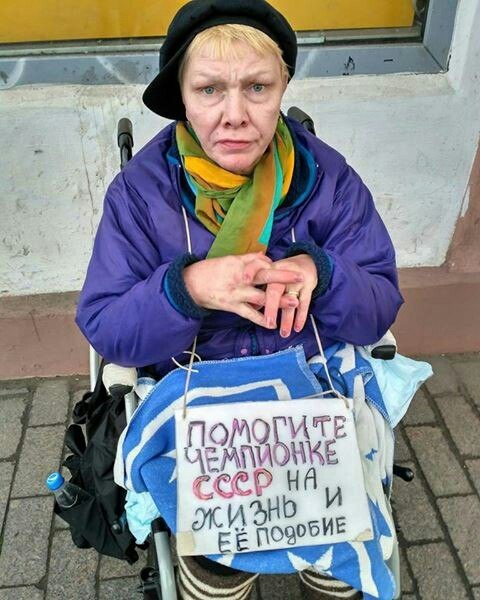 ПОМОГИТЕ
ЧЕМПИОНКЕ
СССР НА
ЖИЗНЬ И
ЕЁ ПОДОБИЕ